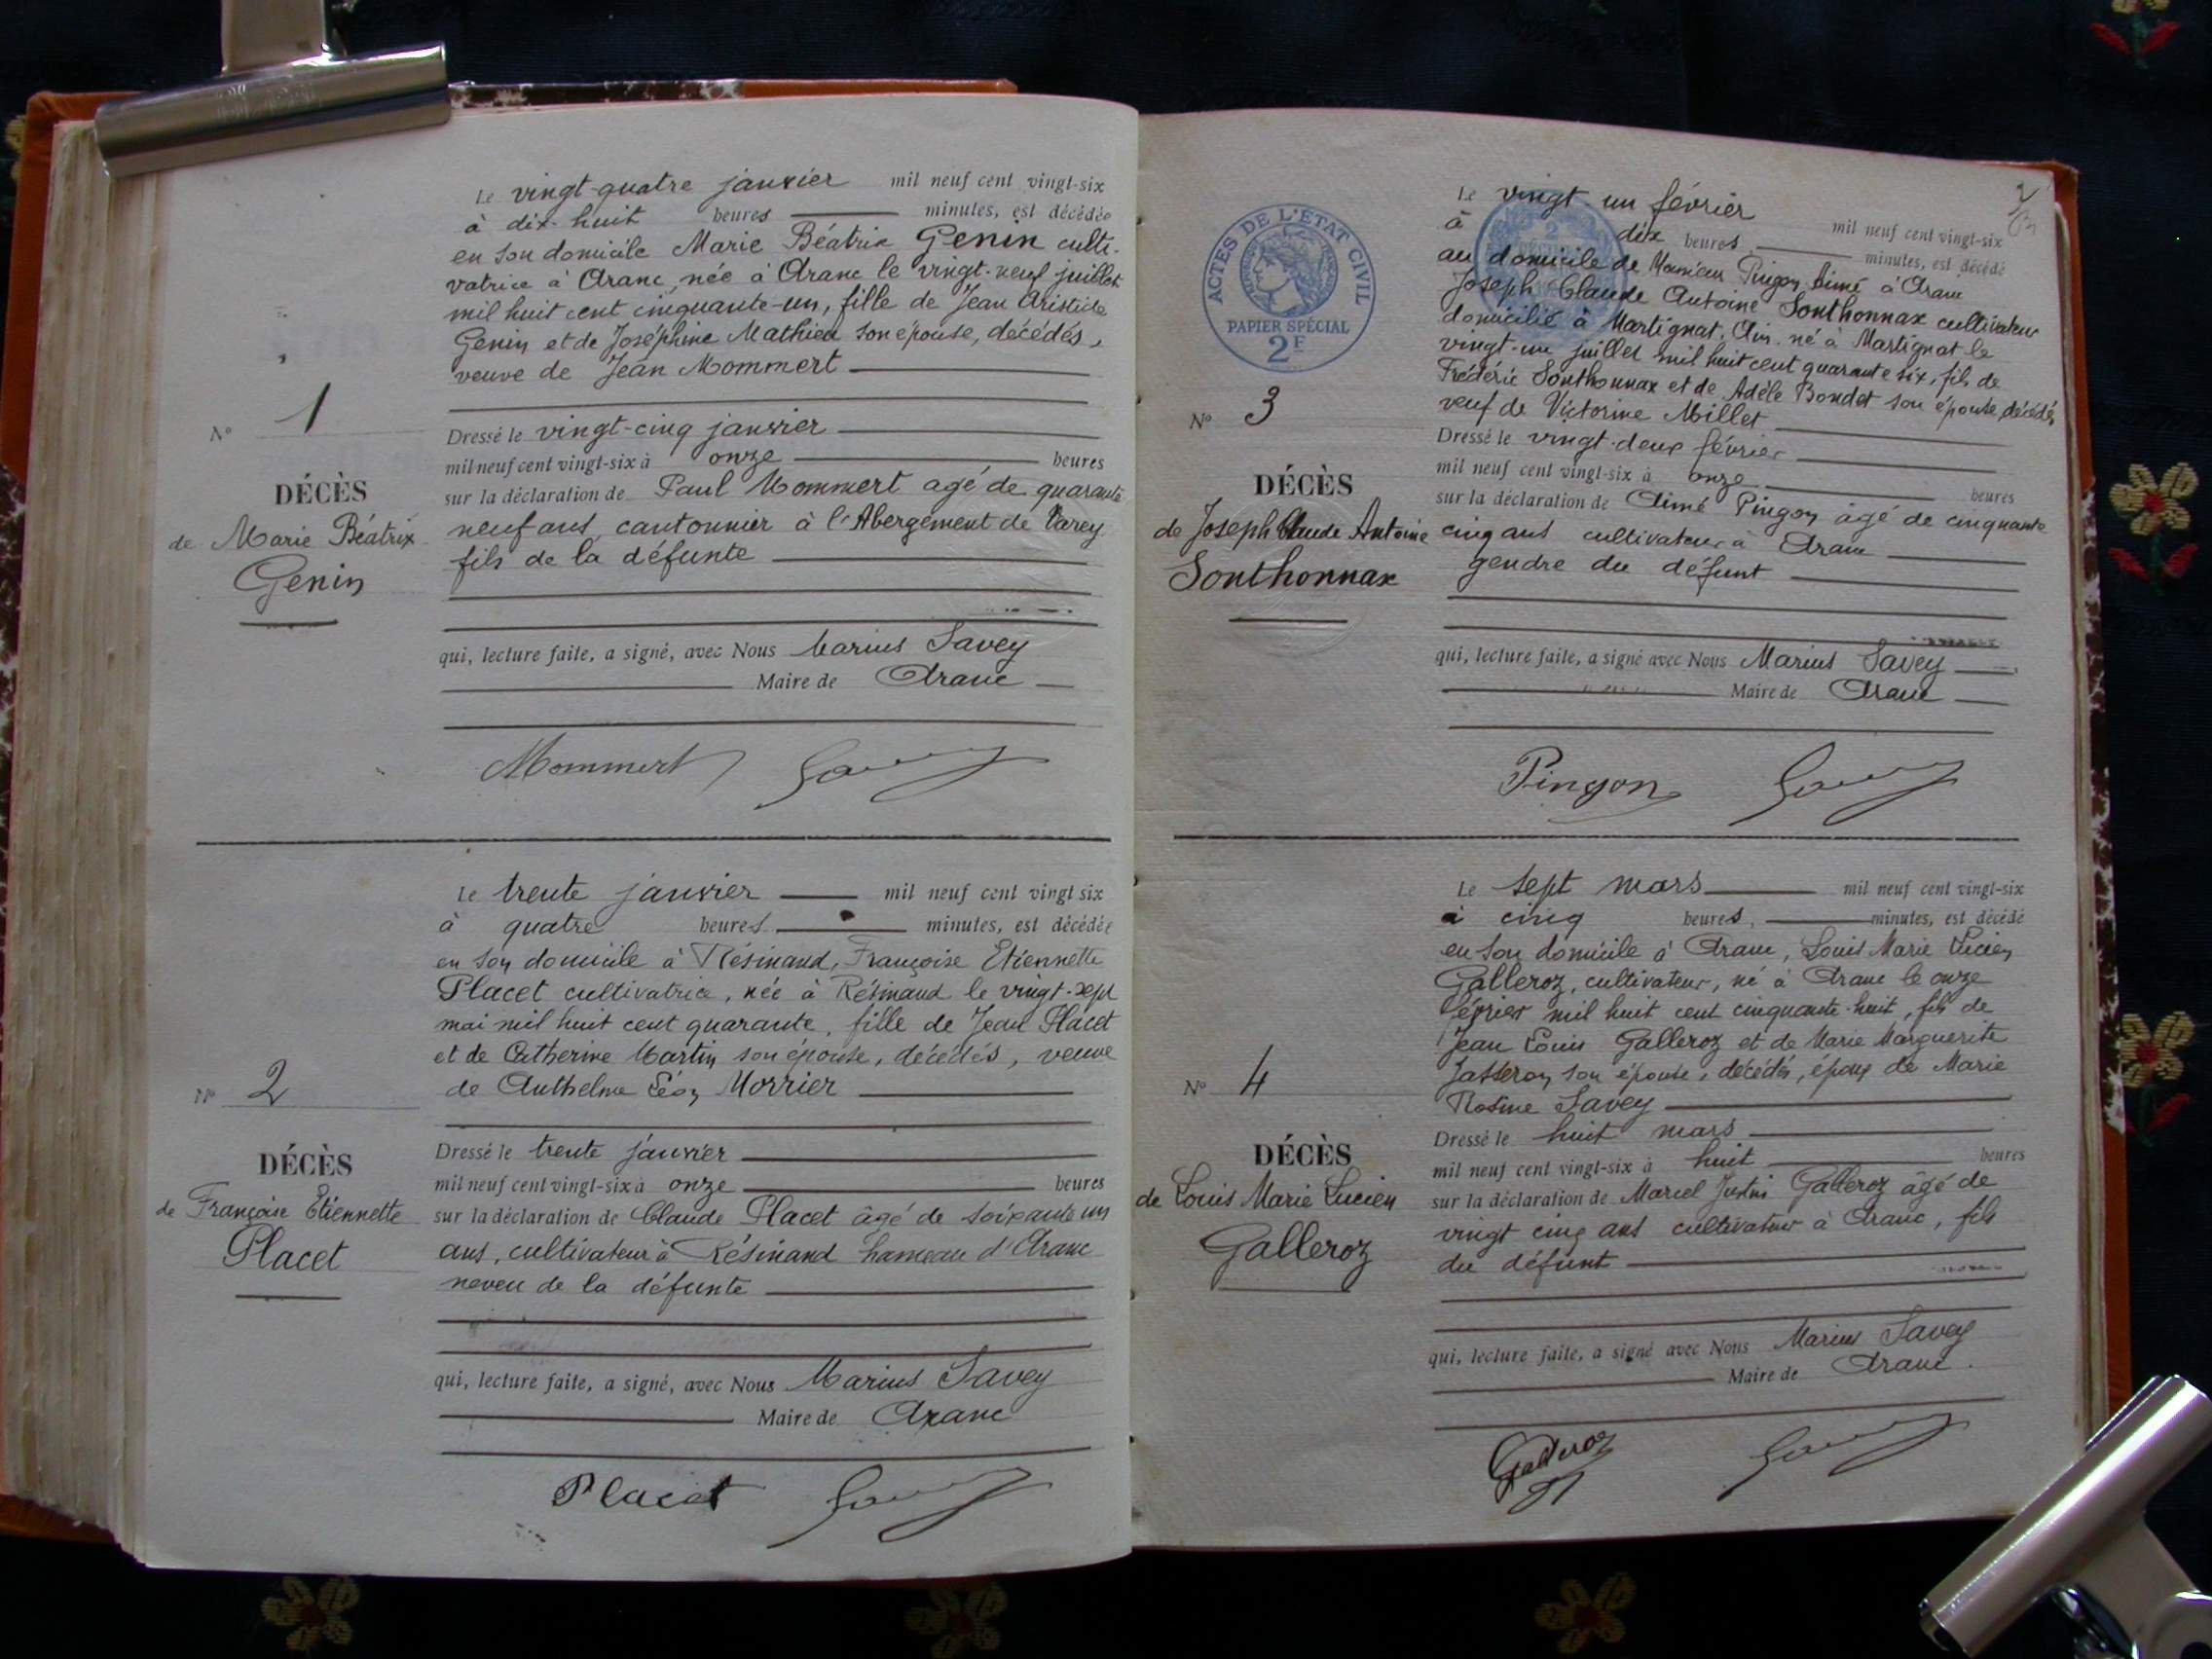 Le vingt-quatre janvier mil neuf cent vingt-six
à dix-huit heures minutes, est décédée
en son domicile Marie Béatrix Genin culti-
vatrice à Aranc, née à Aranc le vingt-neuf juillet
mil huit cent cinquante-un, fille de Jean Aristide
Genin et de Joséphine Mathieu son épouse, décédés,
veuve de Jean Mommert
N° 1
Dressé le vingt-cinq janvier
mil neuf cent vingt-six à onze heures
DÉCÈS
sur la déclaration de Paul Mommert agé de quarante
de Marie Béatrix
neuf ans, cantonnier à l'Abergement de Varey
Genin
fils de la défunte
qui, lecture faite, a signé, avec Nous Marius Savey
Maire de Aranc
Mommert Savey
Le trente janvier mil neuf cent vingt six
à quatre heures minutes, est décédée
en son domicile à Résinand, Françoise Etiennette
Placet cultivatrice, née à Résinand le vingt-sept
mai mil huit cent quarante, fille de Jean Placet
et de Catherine Martin son épouse, décédés, veuve
de Anthelme Léon Morrier
N° 2
Dressé le trente janvier
mil neuf cent vingt-six à onze heures
DÉCÈS
sur la déclaration de Claude Placet âgé de soixante un
de Françoise Etiennette
ans, cultivateur à Résinand hameau d'Aranc
Placet
neveu de la défunte
qui, lecture faite, a signé, avec Nous Marius Savey
Maire de Aranc
Placet Savey
2
ACTES DE L'ÉTAT CIVIL
PAPIER SPÉCIAL
2F
Le vingt-un février mil neuf cent vingt-six
à dix heures minutes, est décédé
au domicile de Monsieur Pingon Aimé à Aranc
Joseph Claude Antoine Sonthonnax cultivateur
domicilié à Martignat, Ain. né à Martignat le
vingt-un juillet mil huit cent quarante six, fils de
Frédéric Sonthonnax et de Adèle Bondet son épouse, décédés
veuf de Victorine Millet
N° 3
Dressé le vingt-deux février
mil neuf cent vingt-six à onze heures
DÉCÈS
sur la déclaration de Aimé Pingon âgé de cinquante
de Joseph Claude Antoine
cinq ans cultivateur à Aranc
Sonthonnax
gendre du défunt
qui, lecture faite, a signé avec Nous Marius Savey
Maire de Aranc
Pingon Savey
Le sept mars mil neuf cent vingt-six
à cinq heures, minutes, est décédé
en son domicile à Aranc, Louis Marie Lucien
Galleroz, cultivateur, né à Aranc le onze
février mil huit cent cinquante-huit, fils de
Jean Louis Galleroz et de Marie Marguerite
Jasseron son épouse, décédés, époux de Marie
Rosine Savey
N° 4
Dressé le huit mars
mil neuf cent vingt-six à huit heures
DÉCÈS
sur la déclaration de Marcel Justin Galleroz âgé de
de Louis Marie Lucien
vingt cinq ans cultivateur à Aranc, fils
Galleroz
du défunt
qui, lecture faite, a signé avec Nous Marius Savey
Maire de Aranc.
Galleroz Savey